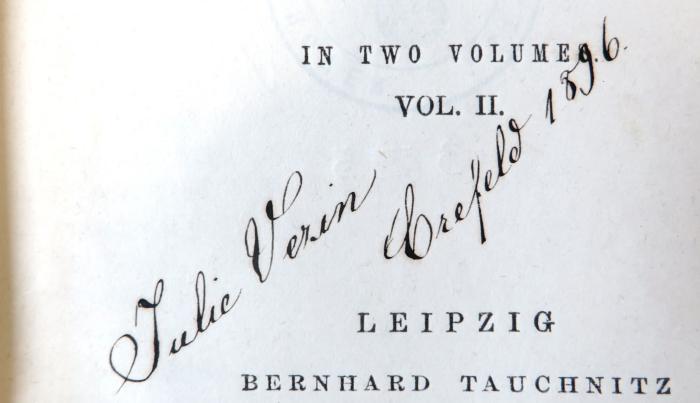 IN TWO VOLUMES.
VOL. II.
Julie Verin
Crefeld 1896.
LEIPZIG
BERNHARD TAUCHNITZ